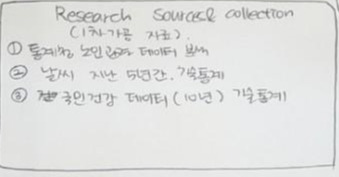 Research Sources & collection
(1차가공 자료).
① 통계청 노인관련 데이터 분석
② 날씨 지난 5년간. 기술통계
③ 국민건강 데이터 (10년) 기술통계